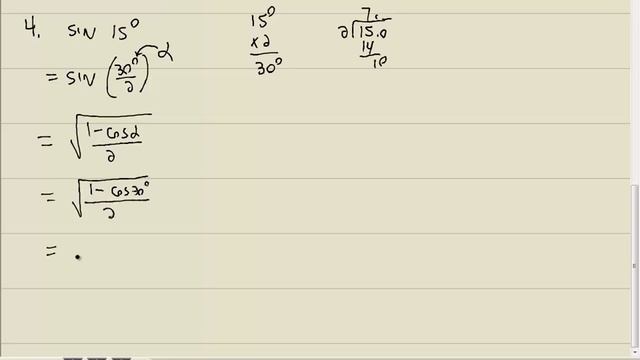 4. sin 15°
= sin (30°/2) α
= √((1 - cos α)/2)
= √((1 - cos 30°)/2)
=
15°
x 2
30°
7.
2)15.0
14
10